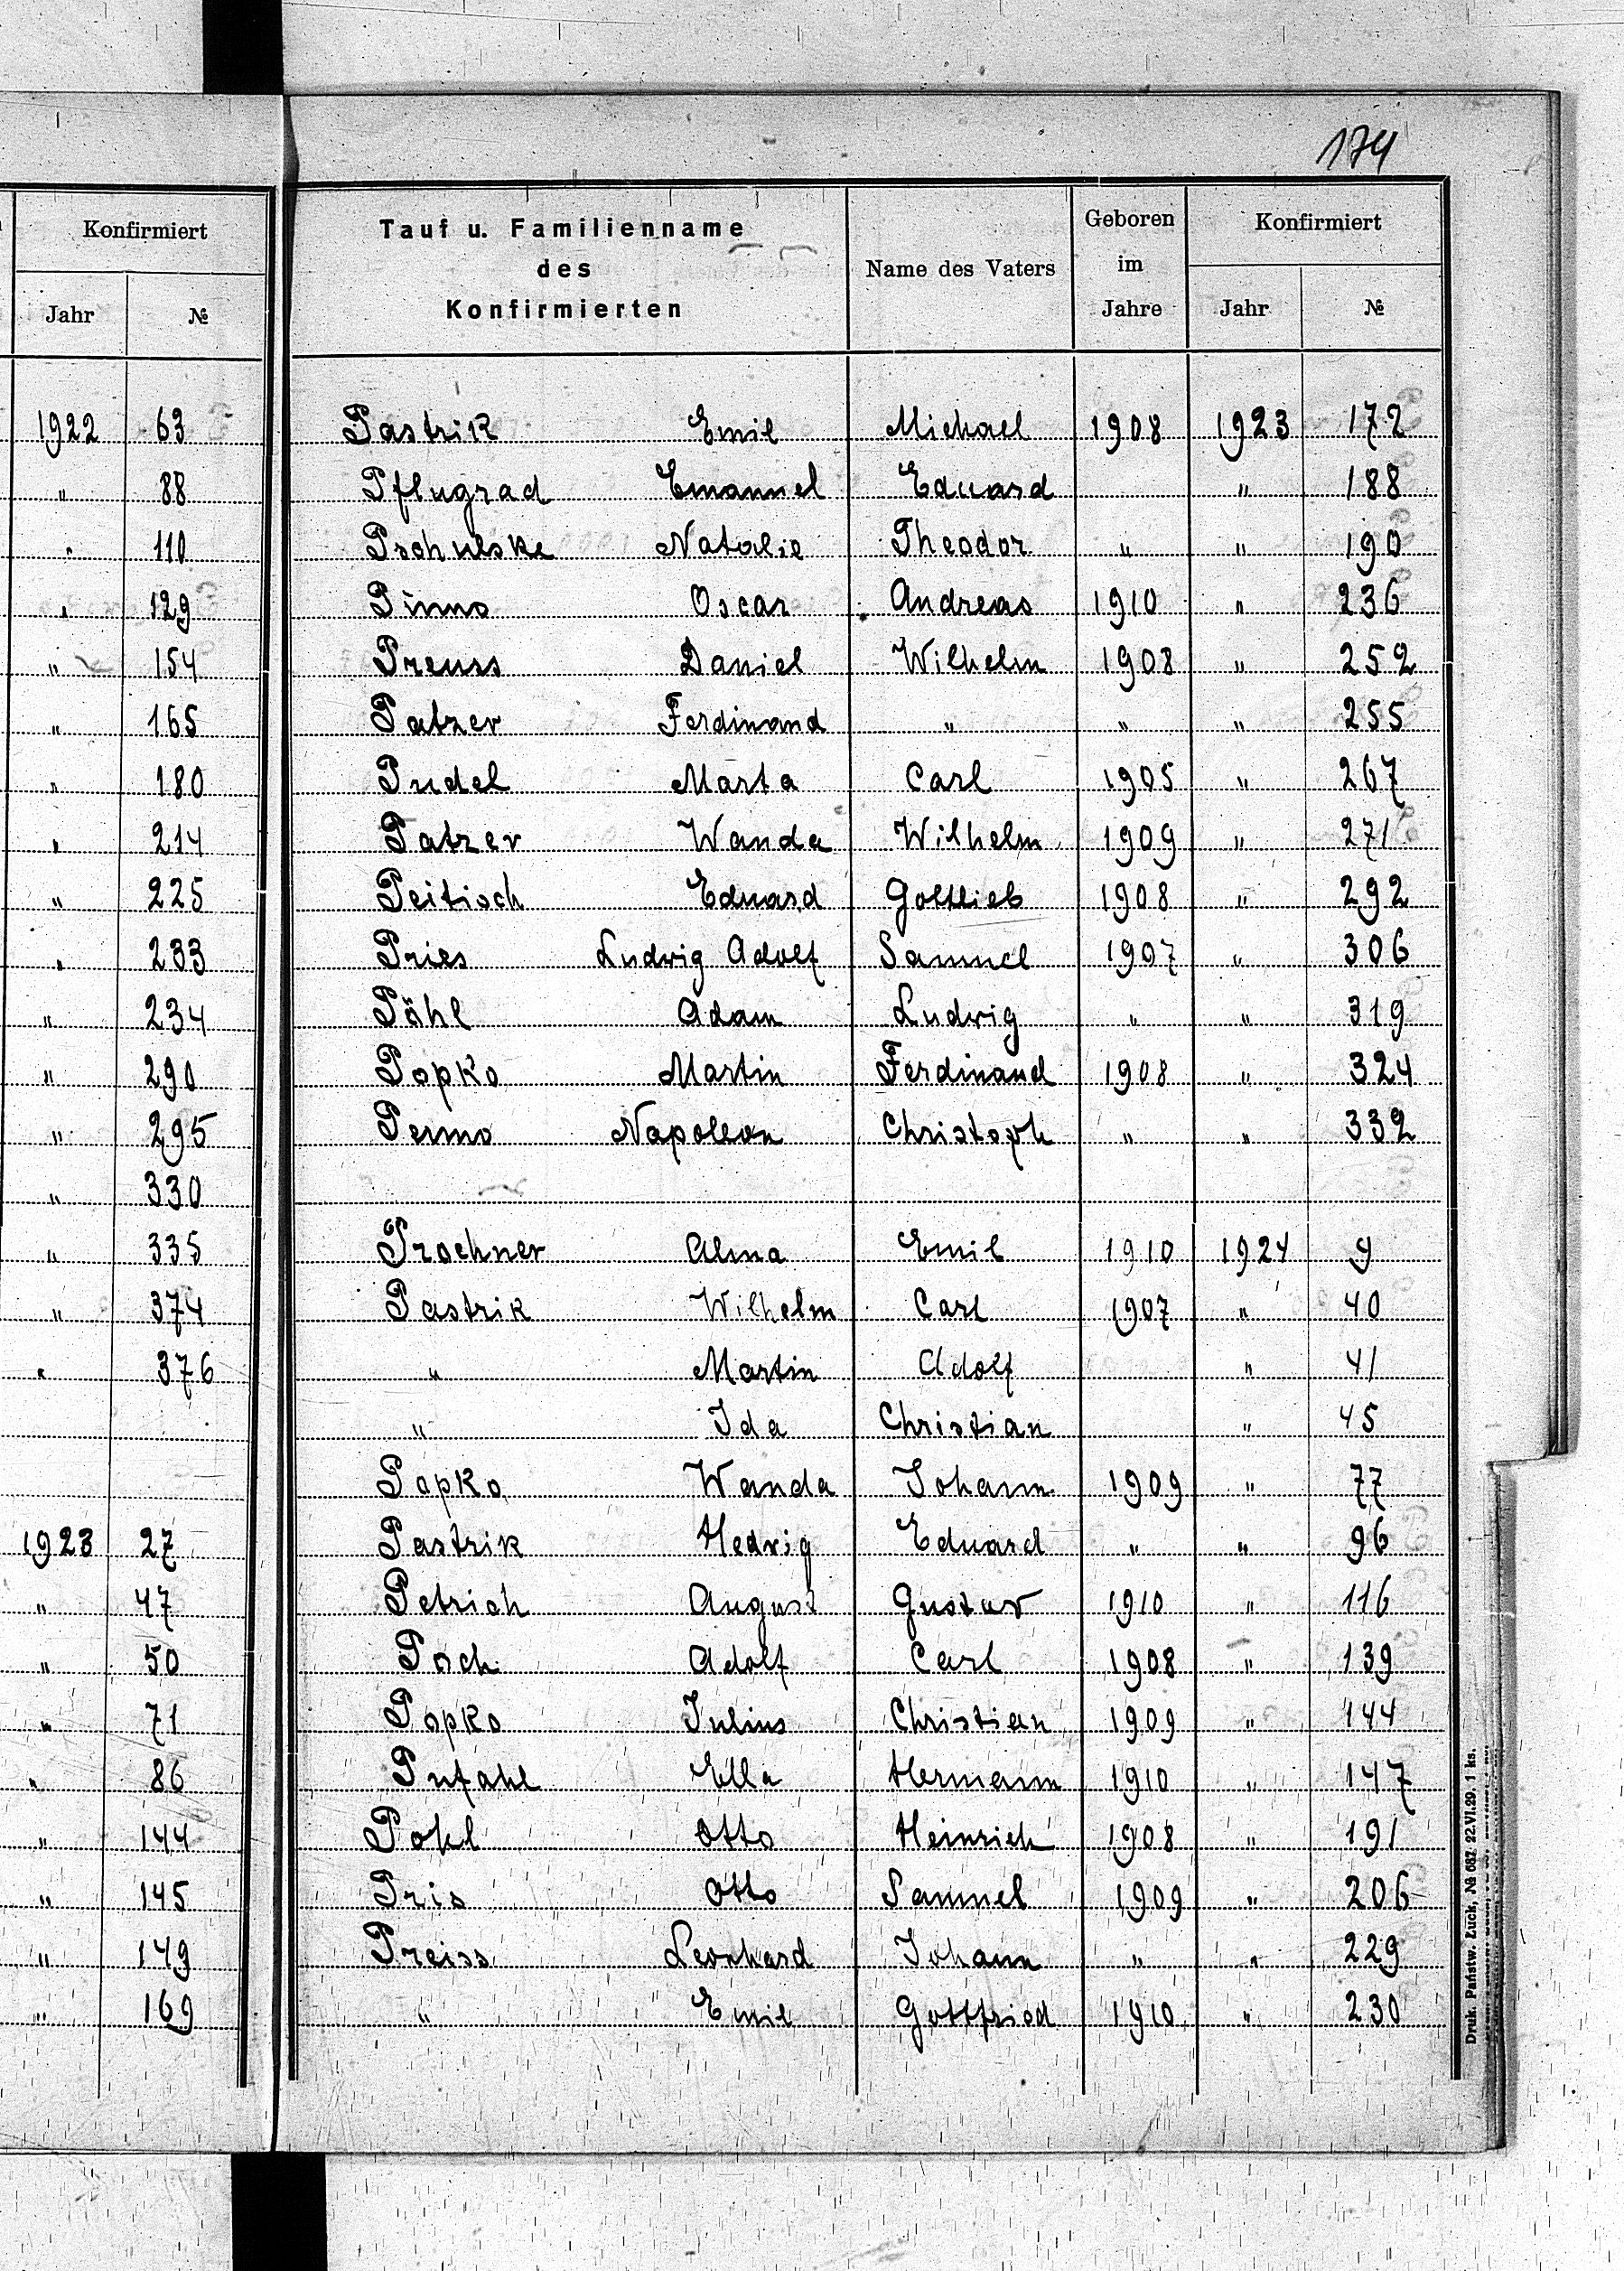 174
Konfirmiert
Jahr №
1922 63
" 88
" 110
" 129
" 154
" 165
" 180
" 214
" 225
" 233
" 234
" 290
" 295
" 330
" 335
" 374
" 376
1923 27
" 47
" 50
" 71
" 86
" 144
" 145
" 149
" 169
Tauf u. Familienname des Konfirmierten Name des Vaters Geboren im Jahre Konfirmiert
Jahr №
Pastrik Emil Michael 1908 1923 172
Pflugrad Emanuel Eduard " 188
Natalie Theodor " " 190
Pinno Oscar Andreas 1910 " 236
Preuss Daniel Wilhelm 1908 " 252
Patzer Ferdinand " " " 255
Pudel Marta Carl 1905 " 267
Patzer Wanda Wilhelm 1909 " 271
Peitisch Eduard Gottlieb 1908 " 292
Pries Ludwig Adolf Samuel 1907 " 306
Pöhl Adam Ludwig " " 319
Popko Martin Ferdinand 1908 " 324
Penno Napoleon Christoph " " 332
Prochner Alma Emil 1910 1924 9
Pastrik Wilhelm Carl 1907 " 40
" Martin Adolf " 41
" Ida Christian " 45
Popko Wanda Johann 1909 " 77
Pastrik Hedwig Eduard " " 96
Petrich August Gustav 1910 " 116
Poch Adolf Carl 1908 " 139
Popko Julius Christian 1909 " 144
Pufahl Ella Hermann 1910 " 147
Pohl Otto Heinrich 1908 " 191
Pris Otto Samuel 1909 " 206
Preiss Leonhard Johann " " 229
" Emil Gottfried 1910 " 230
Druk. Państw. Łuck, № 687 22.VI.29. 1 ks.